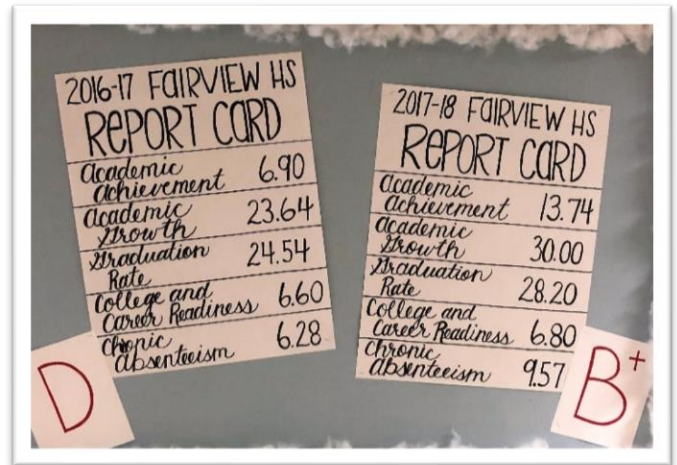 2016-17 FAIRVIEW HS
REPORT CARD
Academic
Achievement 6.90
Academic
Growth 23.64
Graduation
Rate 24.54
College and
Career Readiness 6.60
Chronic
Absenteeism 6.28
D
2017-18 FAIRVIEW HS
REPORT CARD
Academic
Achievement 13.74
Academic
Growth 30.00
Graduation
Rate 28.20
College and
Career Readiness 6.80
Chronic
Absenteeism 9.57
B+